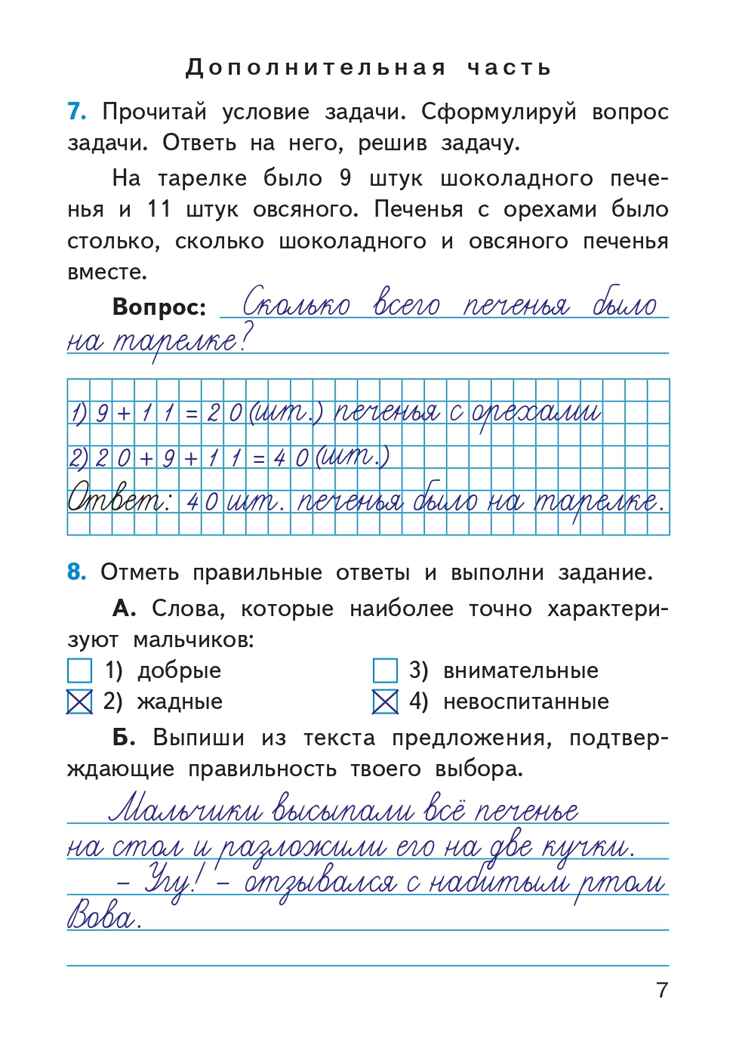 Дополнительная часть
7. Прочитай условие задачи. Сформулируй вопрос
задачи. Ответь на него, решив задачу.
На тарелке было 9 штук шоколадного пече-
нья и 11 штук овсяного. Печенья с орехами было
столько, сколько шоколадного и овсяного печенья
вместе.
Вопрос: Сколько всего печенья было
на тарелке?
1) 9 + 11 = 20 (шт.) печенья с орехами
2) 20 + 9 + 11 = 40 (шт.)
Ответ: 40 шт. печенья было на тарелке.
8. Отметь правильные ответы и выполни задание.
А. Слова, которые наиболее точно характери-
зуют мальчиков:
1) добрые 3) внимательные
2) жадные 4) невоспитанные
Б. Выпиши из текста предложения, подтвер-
ждающие правильность твоего выбора.
Мальчики высыпали всё печенье
на стол и разложили его на две кучки.
– Угу! – отзывался с набитым ртом
Вова.
7